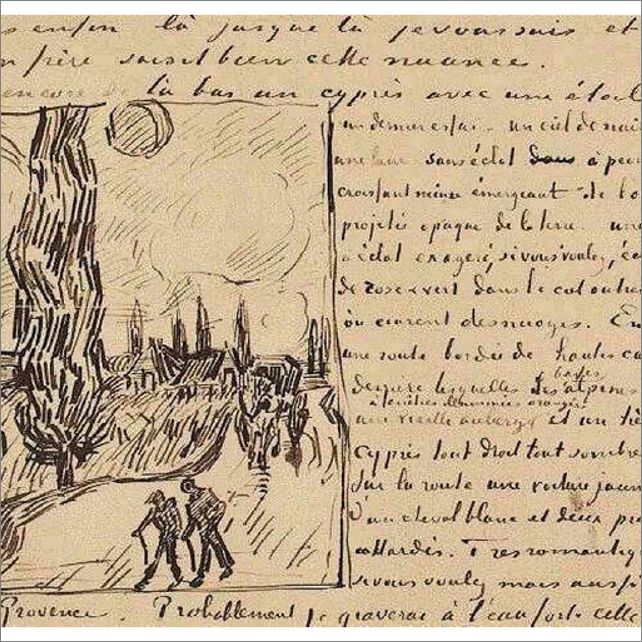 enfin là jusque là je voussais et
père saisit bien cette nuance.
encore de là bas un cyprès avec une étoile
un dernier essai – un ciel de nuit
une lune sans éclat dans à peine
croissant mince émergeant de l'o
projetée opaque de la terre – une
à éclat exagéré, si vous voulez, éc
de rose et vert dans le ciel outre
où courent des nuages. En
une route bordée de hautes ca
derrière lesquelles les basses alpines
à fenêtres illuminées orangé
une vieille auberge et un
cyprès tout droit tout sombre
Sur la route une voiture jaune
d'un cheval blanc et deux
attardés. Très romantique
si vous voulez mais aussi
Provence. Probablement je graverai à l'eau forte celle